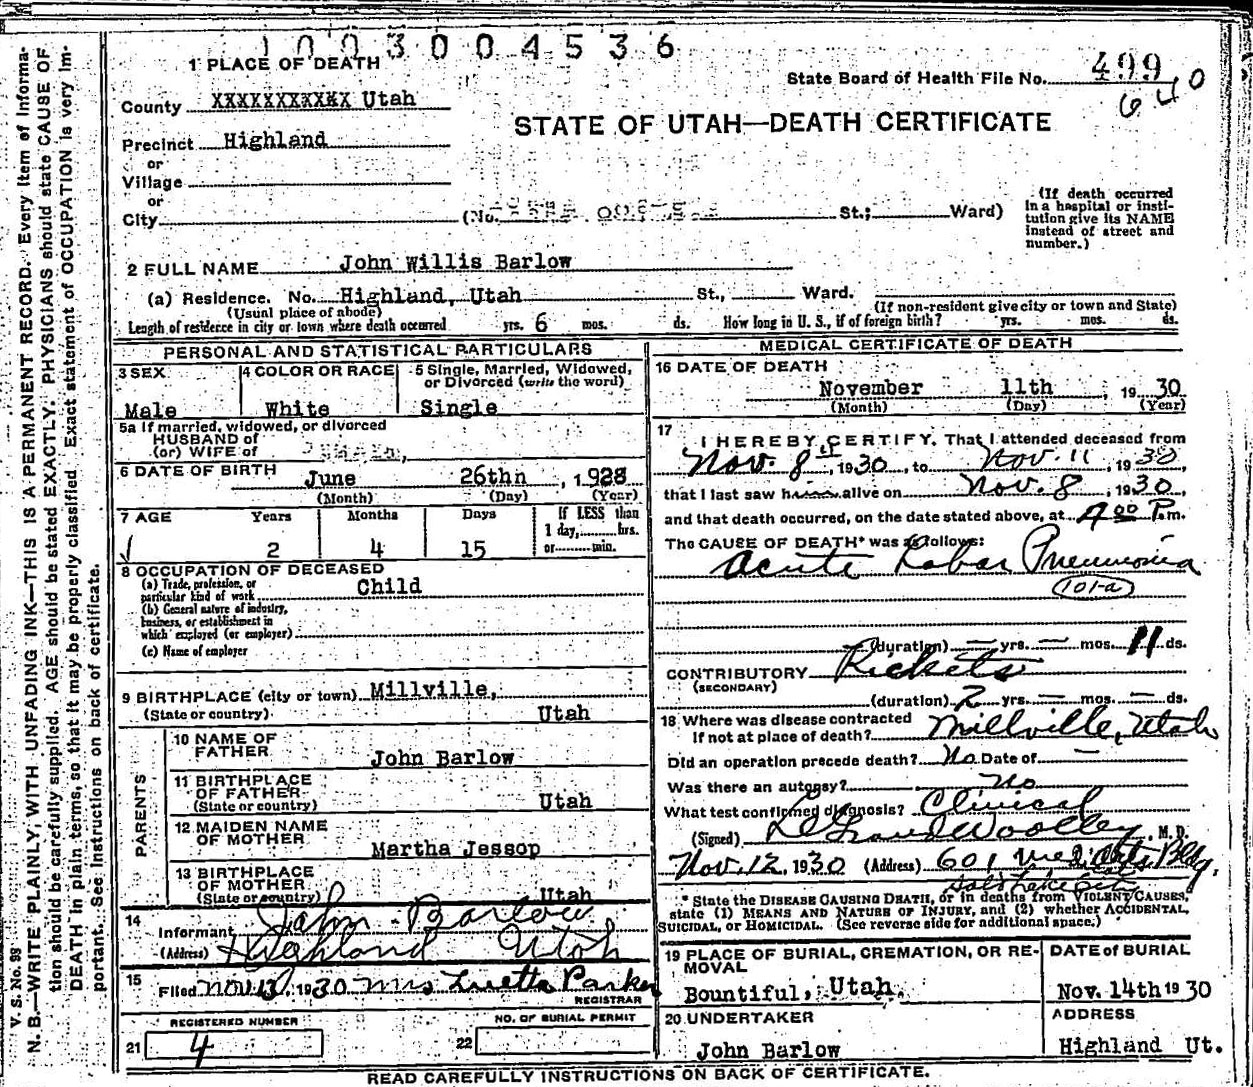 1003004536
1 PLACE OF DEATH
State Board of Health File No. 499
640
County XXXXXXXXXXX Utah
STATE OF UTAH—DEATH CERTIFICATE
Precinct Highland
or
Village
or
City (No. St.; Ward)
(If death occurred in a hospital or institution give its NAME instead of street and number.)
2 FULL NAME John Willis Barlow
(a) Residence. No. Highland, Utah St., Ward.
(Usual place of abode) (If non-resident give city or town and State)
Length of residence in city or town where death occurred yrs. 6 mos. ds. How long in U. S., if of foreign birth? yrs. mos. ds.
PERSONAL AND STATISTICAL PARTICULARS
3 SEX 4 COLOR OR RACE 5 Single, Married, Widowed, or Divorced (write the word)
Male White Single
5a If married, widowed, or divorced
HUSBAND of
(or) WIFE of
6 DATE OF BIRTH June 26thn, 1928
(Month) (Day) (Year)
7 AGE Years Months Days If LESS than
1 day, hrs.
2 4 15 or min.
8 OCCUPATION OF DECEASED
(a) Trade, profession, or particular kind of work Child
(b) General nature of industry, business, or establishment in which employed (or employer)
(c) Name of employer
9 BIRTHPLACE (city or town) Millville,
(State or country) Utah
PARENTS
10 NAME OF FATHER John Barlow
11 BIRTHPLACE OF FATHER (State or country) Utah
12 MAIDEN NAME OF MOTHER Martha Jessop
13 BIRTHPLACE OF MOTHER (State or country) Utah
14
Informant John Barlow
(Address) Highland Utah
15 Filed Nov 13, 1930 Mrs Luetta Parker
REGISTRAR
REGISTERED NUMBER NO. OF BURIAL PERMIT
21 4 22
MEDICAL CERTIFICATE OF DEATH
16 DATE OF DEATH
November 11th, 1930
(Month) (Day) (Year)
17
I HEREBY CERTIFY, That I attended deceased from
Nov. 8th, 1930, to Nov. 11, 1930,
that I last saw him alive on Nov. 8, 1930
and that death occurred, on the date stated above, at 9:00 P.m.
The CAUSE OF DEATH* was as follows:
Acute Lobar Pneumonia
101-a
(duration) — yrs. — mos. 11 ds.
CONTRIBUTORY Rickets
(SECONDARY)
(duration) 2 yrs. — mos. — ds.
18 Where was disease contracted
If not at place of death? Millville, Utah
Did an operation precede death? No Date of —
Was there an autopsy? No
What test confirmed diagnosis? Clinical
(Signed) LeGrand Woolley, M. D.
Nov. 12, 1930 (Address) 601 Med. Arts Bldg,
Salt Lake City
* State the DISEASE CAUSING DEATH, or in deaths from VIOLENT CAUSES,
state (1) MEANS AND NATURE OF INJURY, and (2) whether ACCIDENTAL,
SUICIDAL, or HOMICIDAL. (See reverse side for additional space.)
19 PLACE OF BURIAL, CREMATION, OR REMOVAL DATE OF BURIAL
Bountiful, Utah. Nov. 14th 1930
20 UNDERTAKER ADDRESS
John Barlow Highland Ut.
READ CAREFULLY INSTRUCTIONS ON BACK OF CERTIFICATE.
V. S. No. 99
N. B.—WRITE PLAINLY, WITH UNFADING INK—THIS IS A PERMANENT RECORD. Every item of information should be carefully supplied. AGE should be stated EXACTLY. PHYSICIANS should state CAUSE OF DEATH in plain terms, so that it may be properly classified. Exact statement of OCCUPATION is very important. See Instructions on back of certificate.